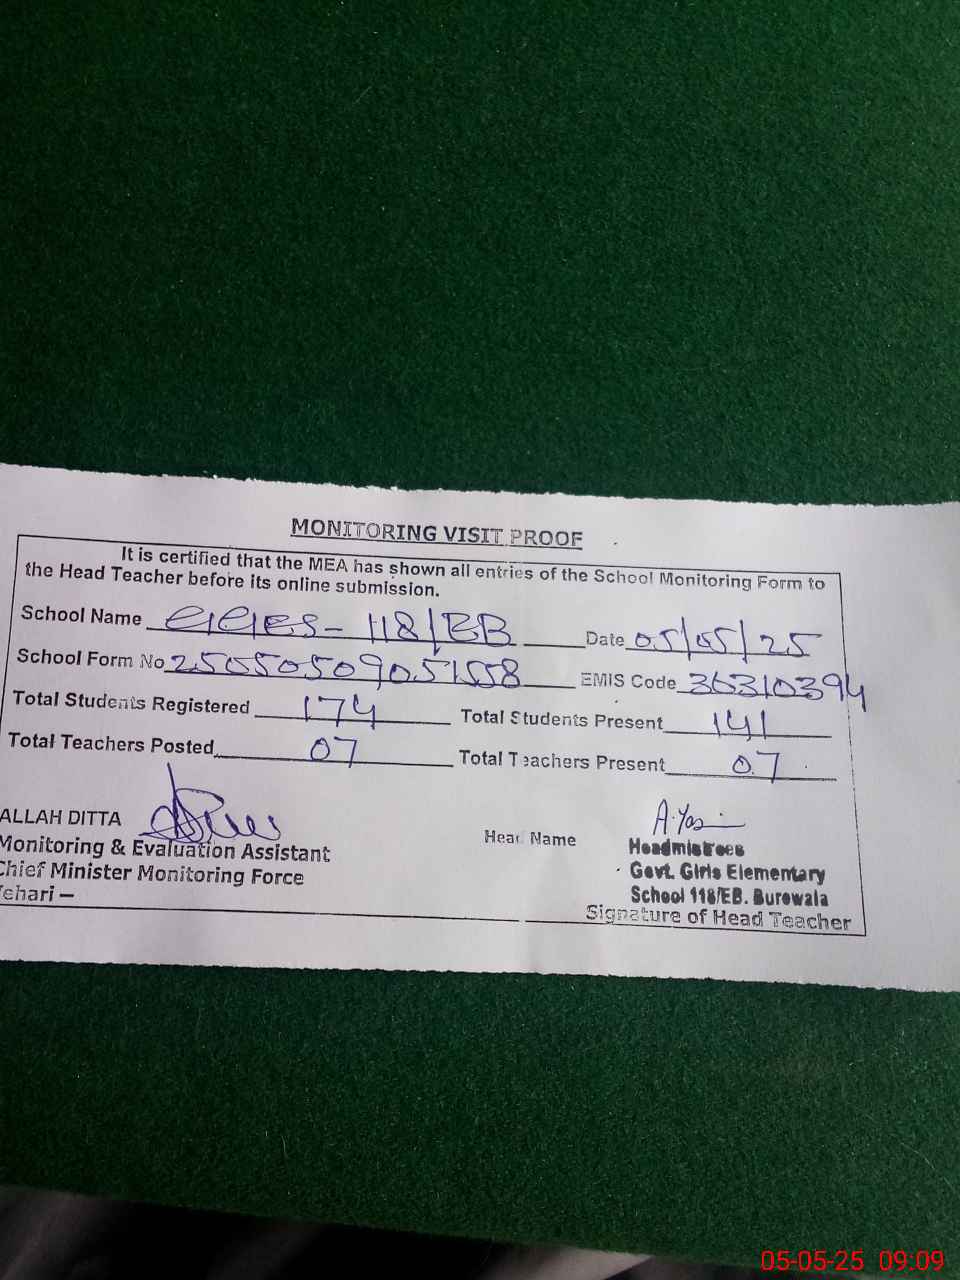 MONITORING VISIT PROOF
It is certified that the MEA has shown all entries of the School Monitoring Form to
the Head Teacher before its online submission.
School Name GGES- 118/EB Date 05/05/25
School Form No 25050509051558 EMIS Code 36310394
Total Students Registered 174 Total Students Present 141
Total Teachers Posted 07 Total Teachers Present 07
ALLAH DITTA
Monitoring & Evaluation Assistant
Chief Minister Monitoring Force
Vehari –
Head Name
A.Yas
Headmistrees
Govt. Girls Elementary
School 118/EB. Burewala
Signature of Head Teacher
05-05-25 09:09